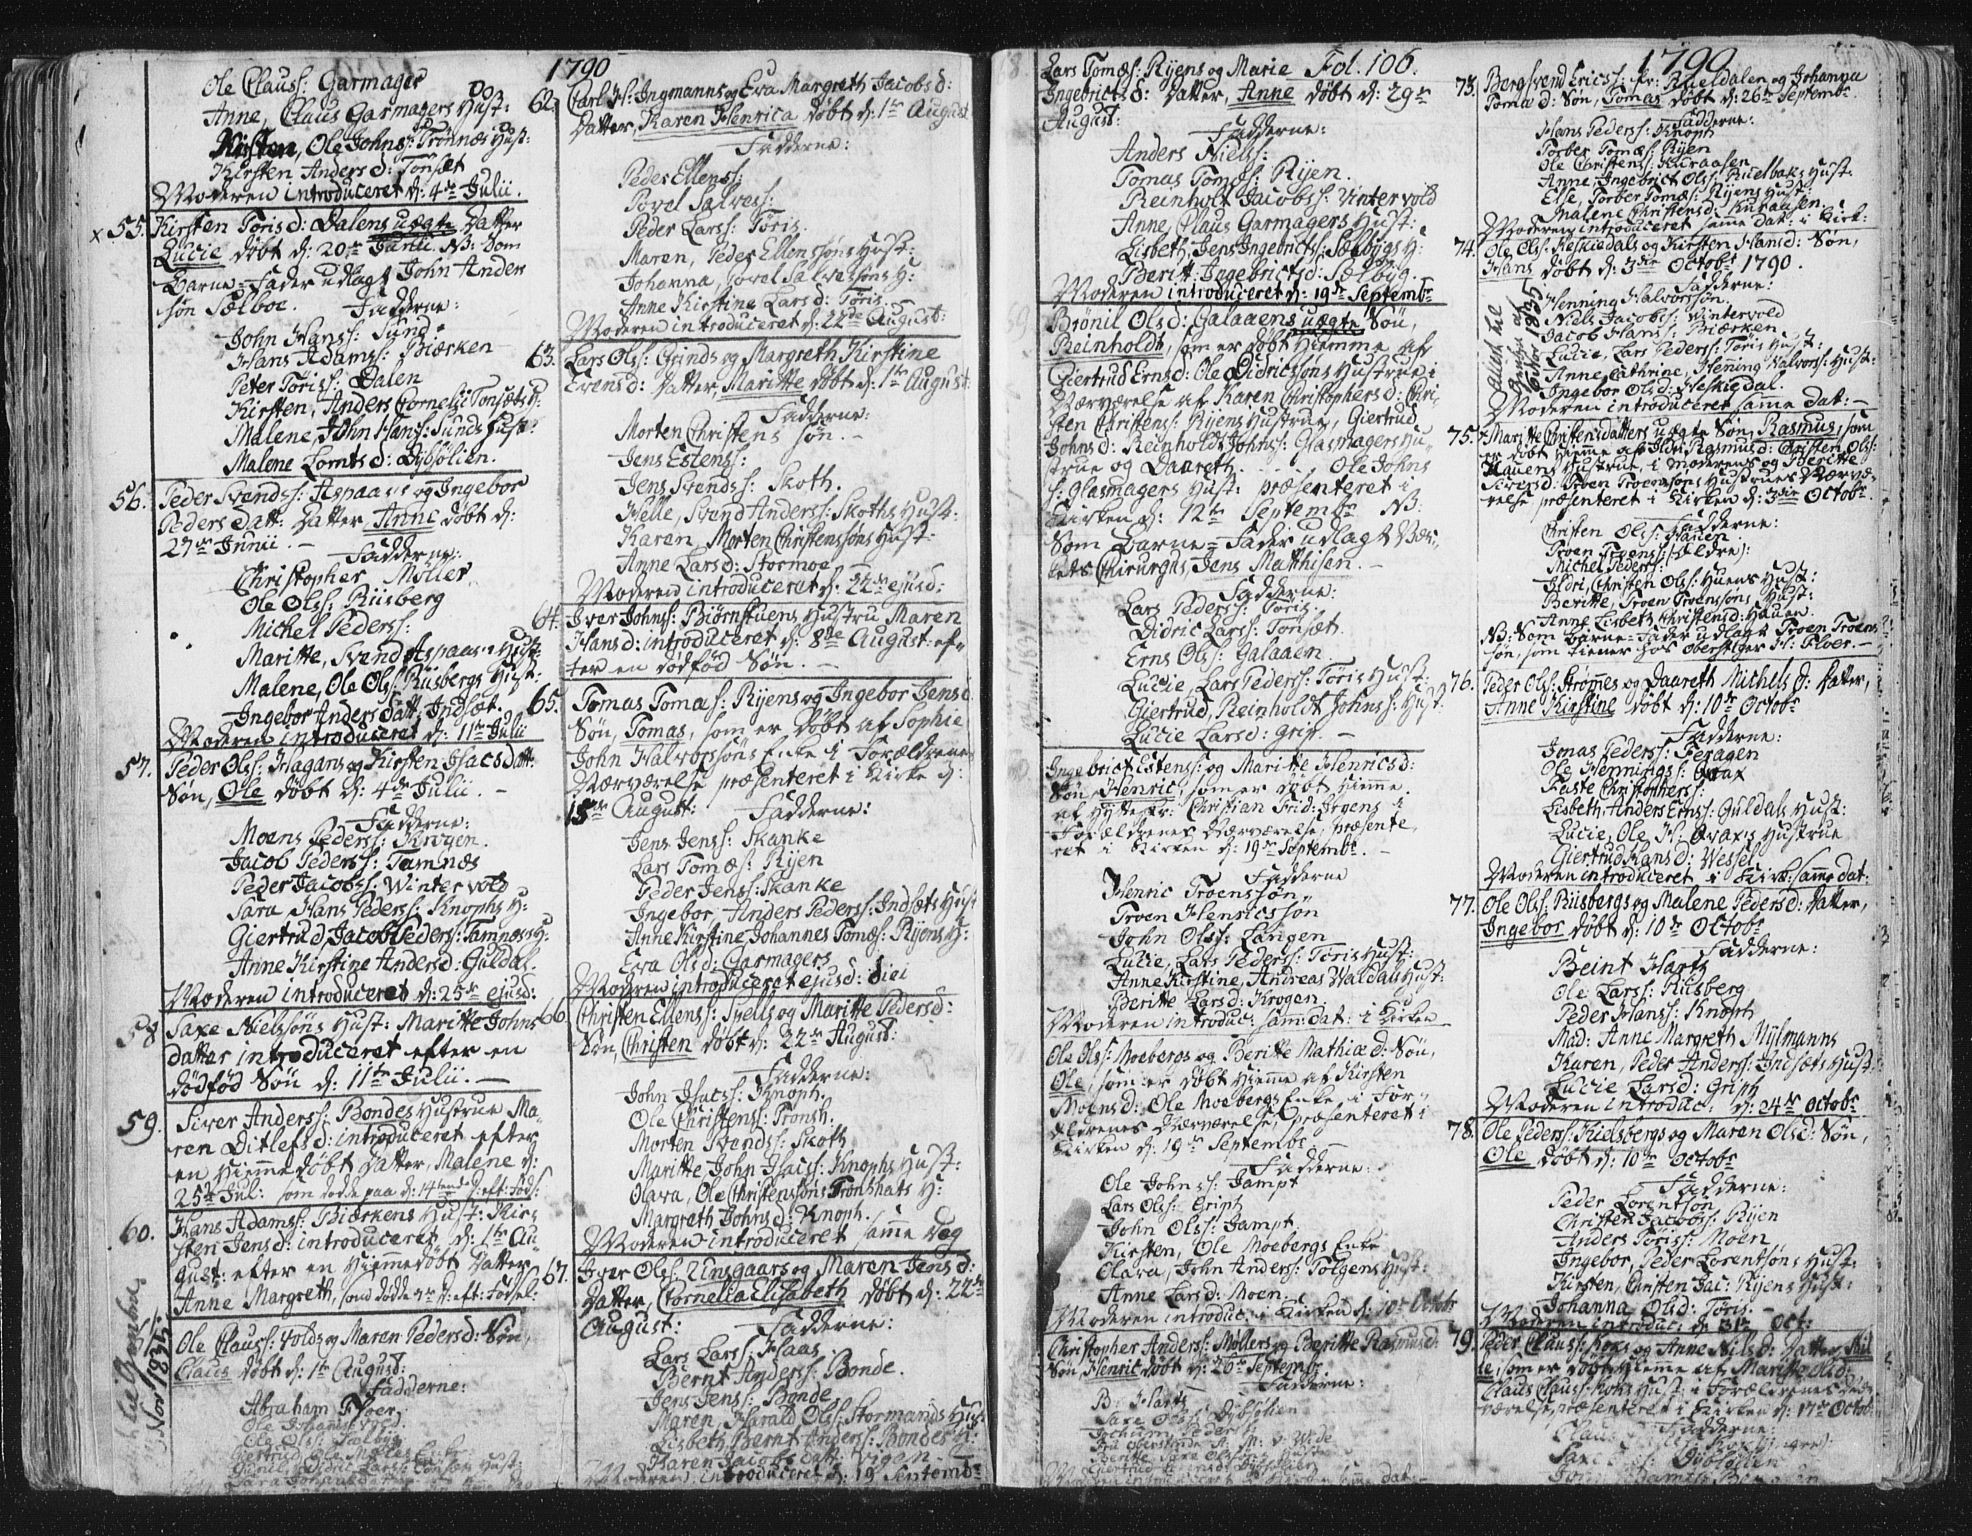 1790
Ole Clauss: Garmager
Anne, Claus Garmagers Hust:
Kirsten, Ole Johnss: Trønnæs Hust:
Kirsten Andersd: Tønsæt
Moderen introduceret d: 4de Julii.
x 55. Kirsten Torisd: Dalens uægte Datter
Lucie døbt d: 20de Junii. NB: Som
Barne-Fader udlagt John Anders
søn Sælboe. Fadderne:
John Hanss: Sund
Hans Adamss: Biærken
Peter Toriss: Dalen
Kirsten, Anders Cornelii Tønsæts H:
Malene, John Hanss: Sunds Hust:
Malene Lomtsd: Dybsølien.
56. Peder Svendss: Aspaas og Ingebor
Peders Datt: Datter Anne døbt d:
27de Junii.
Fadderne:
Christopher Møller
Ole Olss: Riisberg
Michel Pederss:
Maritte, Svend Aspaas Hust:
Malene, Ole Olss: Riisbergs Hust:
Ingebor Anders datt: Indsæt.
Moderen introduceret d: 11te Julii
57. Peder Olss: Hagans og Kirsten Jsacsdatt:
Søn, Ole døbt d: 4de Julii.
Fadderne:
Moens Pederss: Krogen.
Jacob Pederss: Tamnæs
Peder Jacobss: Wintervold
Sara Hans Pederss: Knophs H:
Giertrud, Jacob Peders: Tamnæs H:
Anne Kirstine Andersd: Guldal.
Moderen introduceret d: 25de ejusd:
58. Saxe Nielssøns Hust: Maritte Johns
datter introduceret efter en
dødfød Søn d: 11te Julii.
59. Siver Anderss: Bondes Hustrue Ma-
ren Ditlefsd: introduceret efter
en hiemmedøbt Datter, Malene d:
25de Jul: som døde paa d: 14tende d: eft: Føds:
60. Hans Adamss: Biærkens Hust: Kir-
sten Jensd: introduceret d: 1te Au-
gust: efter en hiemmedøbt Datter
Anne Margreth, som døde d: eft: Fødsel:
Ole Clauss: Volds og Maren Pedersd: Søn,
Claus døbt d: 1te August:
Fadderne:
Abraham Floer
62. Carl H: Ingmanns og Eva Margreth Jacobsd:
Datter, Karen Henrica døbt d: 1te August
Fadderne:
Peder Ellenss:
Povel Salvess:
Peder Larss: Toris.
Maren, Peder Ellenssøns Hust:
Johanna, Povel Salvessøns H:
Anne Kirstine Larsd: Toris
Moderen introduceret d: 22de August:
63. Lars Olss: Grinds og Margreth Kirstine
Evensd: Datter, Maritte døbt d: 1te August:
Fadderne:
Morten Christens søn.
Jens Estenss:
Jens Svendss: Skoth.
Helle, Svend Anderss: Skoths Hust:
Karen, Morten Christenssøns Hust:
Anne Larsd: Stormoe
Moderen introduceret d: 22de ejusd:
64. Iver Johnss: Biørnstuens Hustru Maren
Hansd: introduceret d: 8de August: ef-
ter en dødfød Søn.
65. Tomas Tomæs: Ryens og Ingebor Jensd:
Søn, Tomas, som er døbt af Sophie
John Halvorssøns Enke i Forældrenes
Nærværelse præsenteret i Kirke d:
15de August: Fadderne:
Jens Jenss: Skanke
Lars Tomæs: Ryen
Peder Jenss: Skanke
Ingebor, Anders Pederss: Indsæts Hust
Anne Kirstine, Johannes Tomæs: Ryens H:
Eva Olsd: Garmagers
Moderen introduceret ejusd: diei
66. Christen Ellenss: Svells og Maritte Pedersd:
Søn, Christen døbt d: 22de August:
Fadderne:
John Jsacss: Knoph.
Ole Christenss: Tronsh.
Morten Svendss: Skoth
Maritte John Jsacss: Knophs Hust:
Olava, Ole Christenssøns Tronshats H:
Margreth Johnsd: Knoph.
Moderen introduceret samme Dag
67. Iver Olss: Unsgaars og Maren Jensd:
Datter, Cornelia Elisabeth døbt d: 22de
August: Fadderne:
Lars Larss: Haas.
Bernt Anderss: Bonde.
Jens Jenss: Bonde
Maren, Harald Olss: Stormands Hust
Lisbeth, Bernt Anderss: Bondes H:
Karen Jacobs datt: Vigen
Moderen introduceret d: 19 Septembr
Lars Tomæs: Ryens og Marie Fol: 106.
Ingebrictsd: Datter, Anne døbt d: 29de
August:
Fadderne:
Anders Nielss:
Tomas Tomæs: Ryen.
Reinholt Jacobss: Vintervold
Anne, Claus Garmagers Hust:
Lisbeth, Jens Ingebrictss: Sælbygs H:
Berit Ingebrictsd: Sælbyg.
Moderen introduceret d: 19de Septembr
Brønil Olsd: Galaaens uægte Søn,
Reinholdt, som er døbt hiemme af
Giertrud Ernsd: Ole Didricssøns Hustrue i
Nærværelse af Karen Christophersd: Chri-
sten Christenss: Ryens Hustrue, Giertrud
Johnsd: Reinholdt Johnss: Glasmagers Hu-
strue og Daareth . . . Ole Johns
s: Glasmagers Hust: præsenteret i
Kirken d: 12te Septembr NB:
Som Barne-Fader udlagt Vær-
kets Chirurgus, Jens Matthisen.
Fadderne:
Lars Pederss: Toris.
Didric Larss: Tønsæt.
Erns Olss: Galaaen.
Lucie, Lars Pederss: Toris Hust:
Giertrud, Reinholdt Johnss: Hust.
Lucie Larsd: Grip.
Ingebrict Estenss: og Maritte Henricsd:
Søn, Henric, som er døbt hiemme
af Hyttescr: Christian Frid: Irgens i
Forældrenes Nærværelse, præsente-
ret i Kirken d: 19de Septembr.
Fadderne
Henric Troenssøn
Troen Henricssøn
John Olss: Langen
Lucie, Lars Pederss: Toris Hust:
Anne Kirstine, Andreas Waldals Hust:
Beritte Larsd: Krogen.
Moderen introduc: sam: dat: i Kirken
Ole Olss: Moebergs og Beritte Mathiæd: Søn,
Ole, som er døbt hiemme af Kirsten
Moensd: Ole Moebergs Enke i For-
ældrenes Nærværelse, præsenteret i
Kirken d: 19de Septembr.
Fadderne:
Ole Johnss: Jampt
Lars Olss: Griph
John Olss: Jampt.
Kirsten, Ole Moebergs Enke
Olava, John Anderss: Tolgens Hust:
Anne Larsd: Moen.
Moderen introduc: i Kirken d: 10de Octobr
Christopher Anderss: Møllers og Beritte Rasmusd:
Søn, Henric døbt d: 26de Septembr
Fadderne:
B: Hartz
Saxe Olss: Dybsølien
Jochum Peders
1790
73. Bergsvend Ericss: fr: Rueldalen og Johanna
Tomæd: Søn, Tomas døbt d: 26de Septembr.
Fadderne:
Hans Pederss: Knoph
Torber Tomæs: Ryen
Ole Christenss: Kuraasen
Anne, Ingebrict Olss: Ruelbaks Hust.
Else, Torber Tomæs: Ryens Hust:
Malene Christensd: Kuraasen.
Moderen introduceret samme dat: i Kirk:
74. Ole Olss: Heskiedals og Kirsten Hansd: Søn,
Hans døbt d: 3die Octobr 1790.
Fadderne:
Henning Halvorssøn.
Niels Jacobss: Wintervold
Jacob Hanss: Biærken
Lucie, Lars Pederss: Toris Hust:
Anne Cathrine, Hening Halvorss: Hust:
Ingebor Olsd: Heskiedal.
Moderen introduceret same dat:
75. Maritte Christensdatters uægte Søn, Rasmus, som
er døbt hiemme af Ildri Rasmusd: Christen Olss:
Hauens Hustrue, i Moderens og Beritte
Siversd: Troen Troenssøns Hustrues Nærvæ-
relse præsenteret i Kirken d: 3die Octobr.
Fadderne:
Christen Olss: Hauen.
Troen Troenss: (ældre):
Michel Pederss:
Ildri, Christen Olss: Huens Hust:
Beritte, Troen Troenssøns Hust:
Anne Lisbeth Christensd: Hauen
NB: Som Barne-Fader udlagt Troen Troens
søn, som tiener hos Oberstiger H: Floer.
76. Peder Olss: Strømes og Daareth Michelsd: Datter,
Anne Kirstine døbt d: 10de Octobr
Fadderne:
Jonas Pederss: Feragen
Ole Hennings: Qvax
Faste Christophers:
Lisbeth, Anders Ernss: Guldals Hust:
Lucie, Ole H: Qvax's Hustrue
Giertrud Hansd: Wessel
Moderen introduceret i Kirk: samme dat:
77. Ole Olss: Riisbergs og Malene Pedersd: Datter,
Ingebor døbt d: 10de Octobr
Fadderne:
Beint Hartz
Ole Larss: Riisberg
Peder Hanss: Knoph
Mad: Anne Margreth Mylmanns
Karen, Peder Anderss: Indsæts Hust:
Lucie Larsd: Griph
Moderen introduc. d: 24de Octobr
78. Ole Pederss: Kielsbergs og Maren Olsd: Søn,
Ole døbt d: 10de Octobr
Fadderne:
Peder Lorentsøn
Christen Jacobss: Ryen
Anders Toriss: Moen
Ingebor, Peder Lorentsøns Hust:
Kirsten, Christen Jac: Ryens Hust:
Johanna Olsd: Toris.
Moderen introduc: d: 31te Oct:
79. Peder Clauss: Koks og Anne Nilsd: Datter,
som er døbt hieme af Maritte Olsd:
Claus Clauss: Koks Hust: i Forældrenes Nær-
værelse, præsenteret i Kirken d: 17de Octob:
Fadderne: